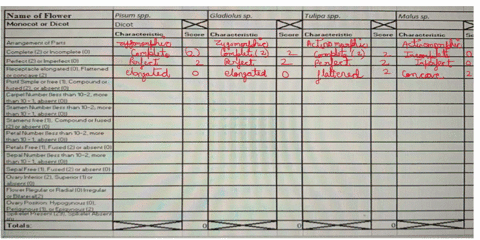 Name of Flower Pisum spp. Gladiolus sp. Tulipa spp. Malus sp.
Monocot or Dicot Dicot
Characteristic Score Characteristic Score Characteristic Score Characteristic
Arrangement of Parts Zygomorphic Actinomorphic Actinomorphic
Complete (2) or Incomplete (0) Complete (2) Complete (2) 2 Complete (2) 2 Incomplete 0
Perfect (2) or Imperfect (0) Perfect 2 Perfect 2 Perfect 2 Imperfect 0
Receptacle elongated (0), Flattened or concave (2) elongated 0 elongated 0 flattened 2 Concave 2
Pistil Simple or free (1), Compound or fused (2), or absent (0)
Carpel Number (less than 10-2, more than 10-1, absent (0))
Stamen Number (less than 10-2, more than 10-1, absent (0))
Stamens free (1), Compound or fused (2) or absent (0)
Petal Number (less than 10-2, more than 10-1, absent (0))
Petals Free (1), Fused (2) or absent (0)
Sepal Number (less than 10-2, more than 10-1, absent (0))
Sepal Free (1), Fused (2) or absent (0)
Ovary Inferior (2), Superior (1) or absent (0)
Flower Regular or Radial (0) Irregular or Bilateral(2)
Ovary Position: Hypogynous (0), Perigynous (1), or Epigynous (2)
Totals: 0 0 0